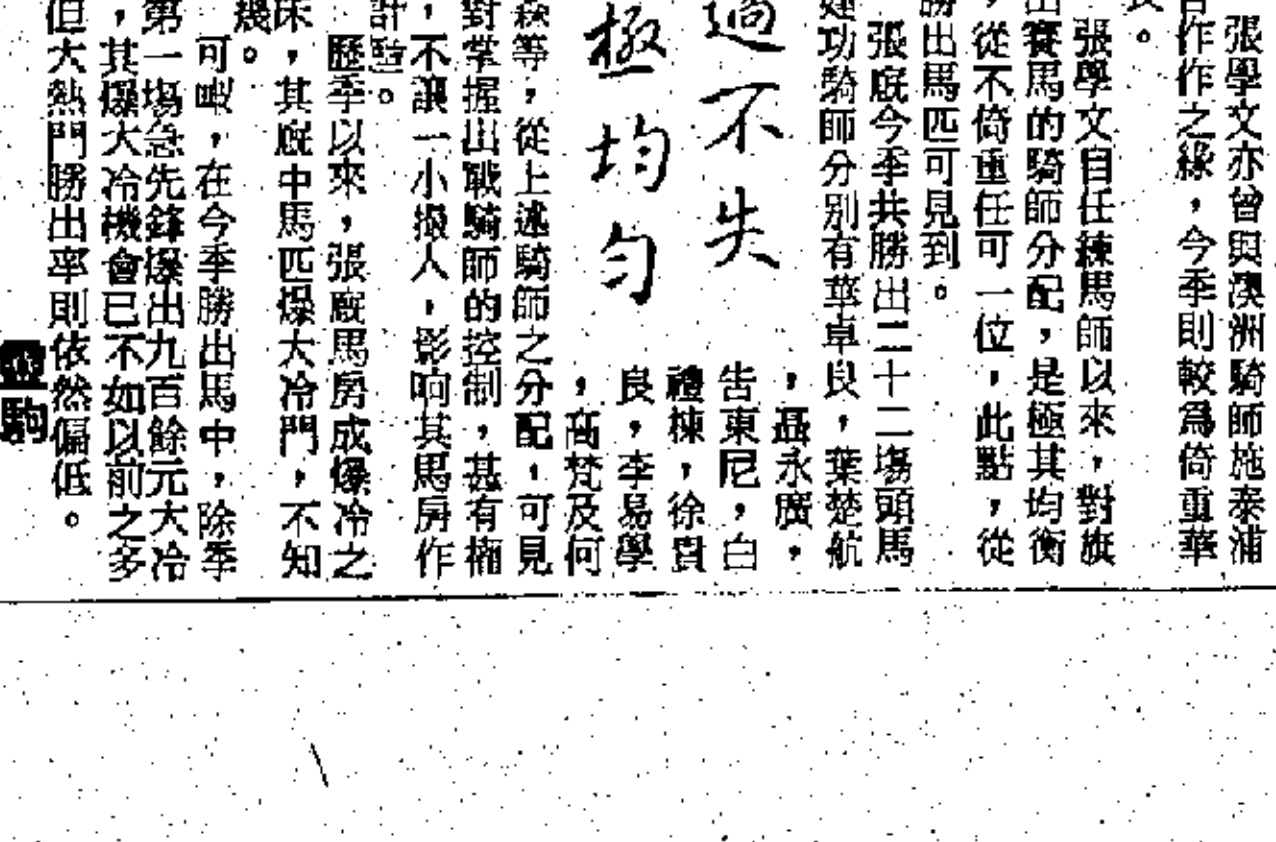 張學文亦曾與澳洲騎師施泰浦
合作作之緣，今季則較爲倚重華
良。
張學文自任練馬師以來，對旗
出賽馬的騎師分配，是極其均衡
，從不倚重任可一位，此點，從
勝出馬匹可見到。
張廐今季共勝出二十二塲頭馬
建功騎師分別有華卓良，葉楚航
，聶永廣，
告東尼，白
禮棟，徐貴
良，李易學
，高梵及何
過不失
極均勻
森等，從上述騎師之分配，可見
對掌握出戰騎師的控制，甚有權
，不讓一小撮人，影响其馬房作
計。
歷季以來，張廐馬房成爆冷之
床，其廐中馬匹爆大冷門，不知
幾。
可㗎，在今季勝出馬中，除季
第一塲急先鋒爆出九百餘元大冷
，其爆大冷機會已不如以前之多
但大熱門勝出率則依然偏低。
駒